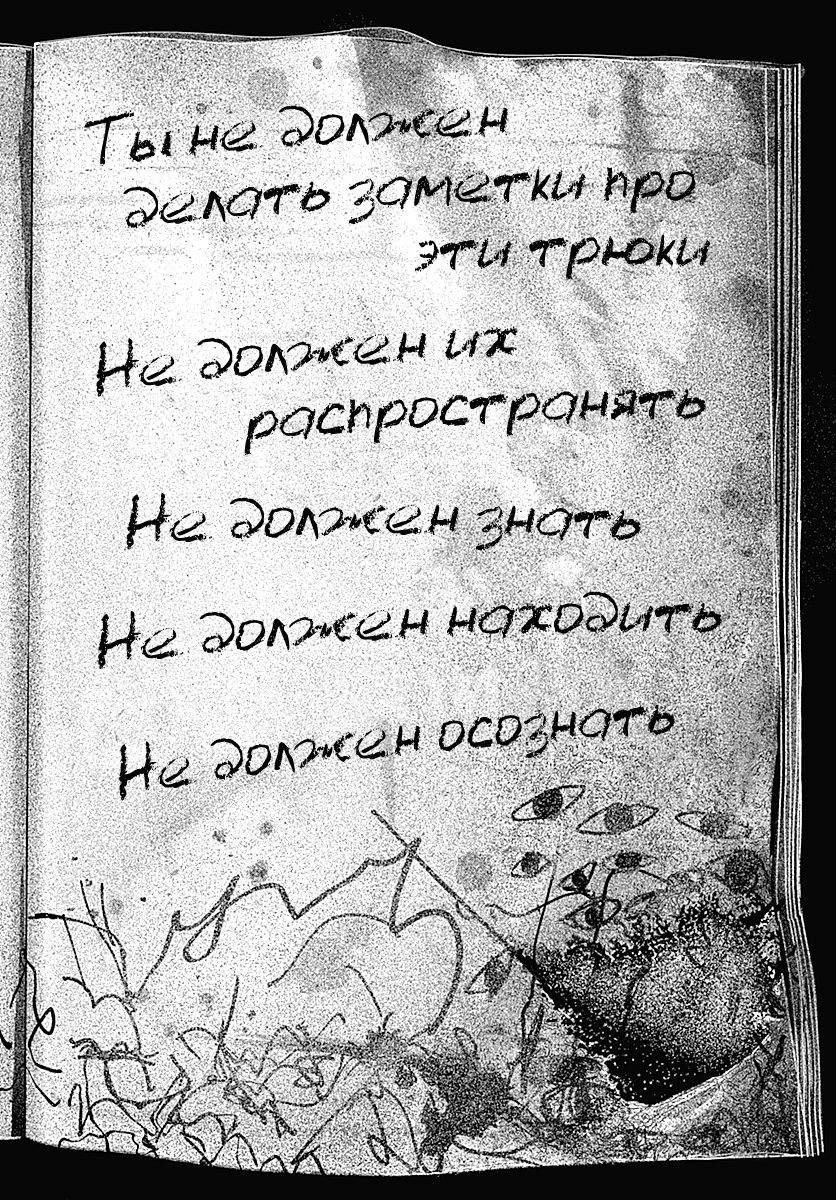 Ты не должен
делать заметки про
эти трюки
Не должен их
распространять
Не должен знать
Не должен находить
Не должен осознать